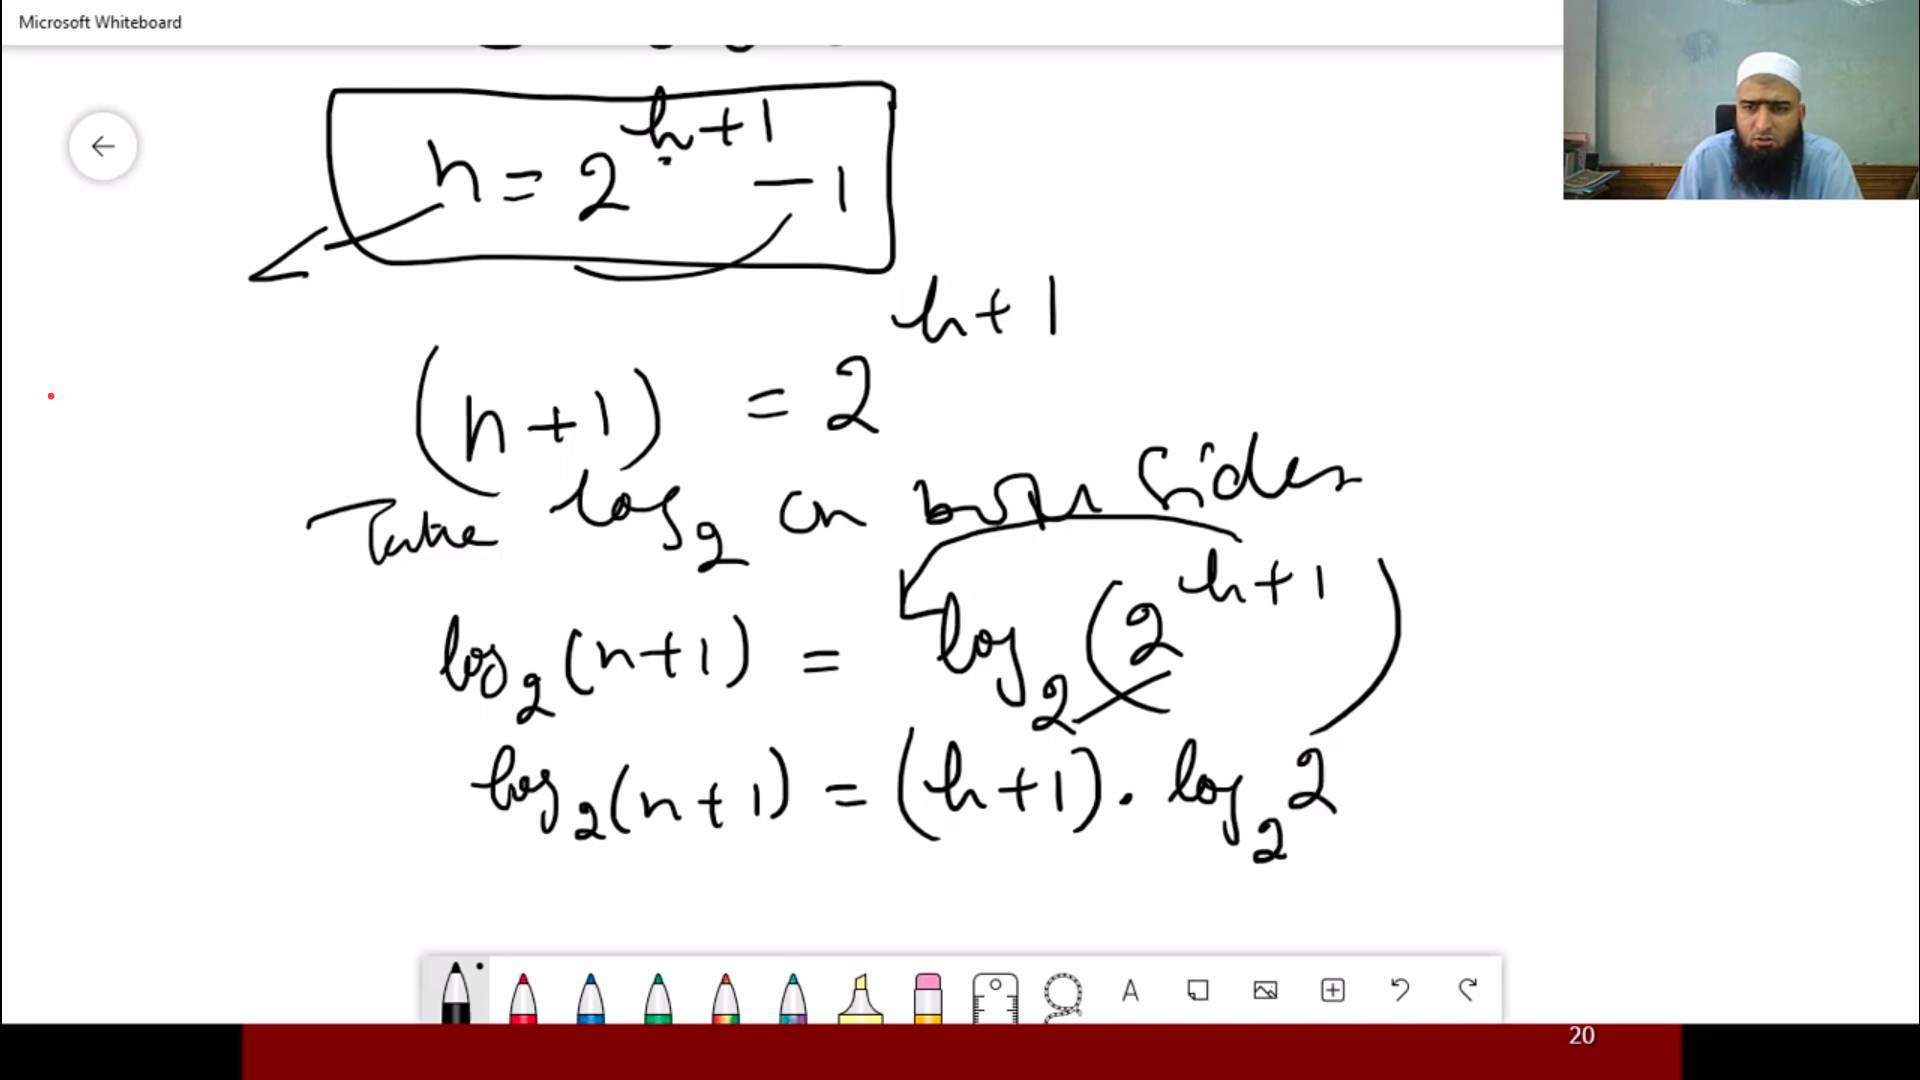 Microsoft Whiteboard
n = 2^{h+1} - 1
(n+1) = 2^{h+1}
Take log₂ on both sides
log₂(n+1) = log₂(2^{h+1})
log₂(n+1) = (h+1) . log₂2
A
20